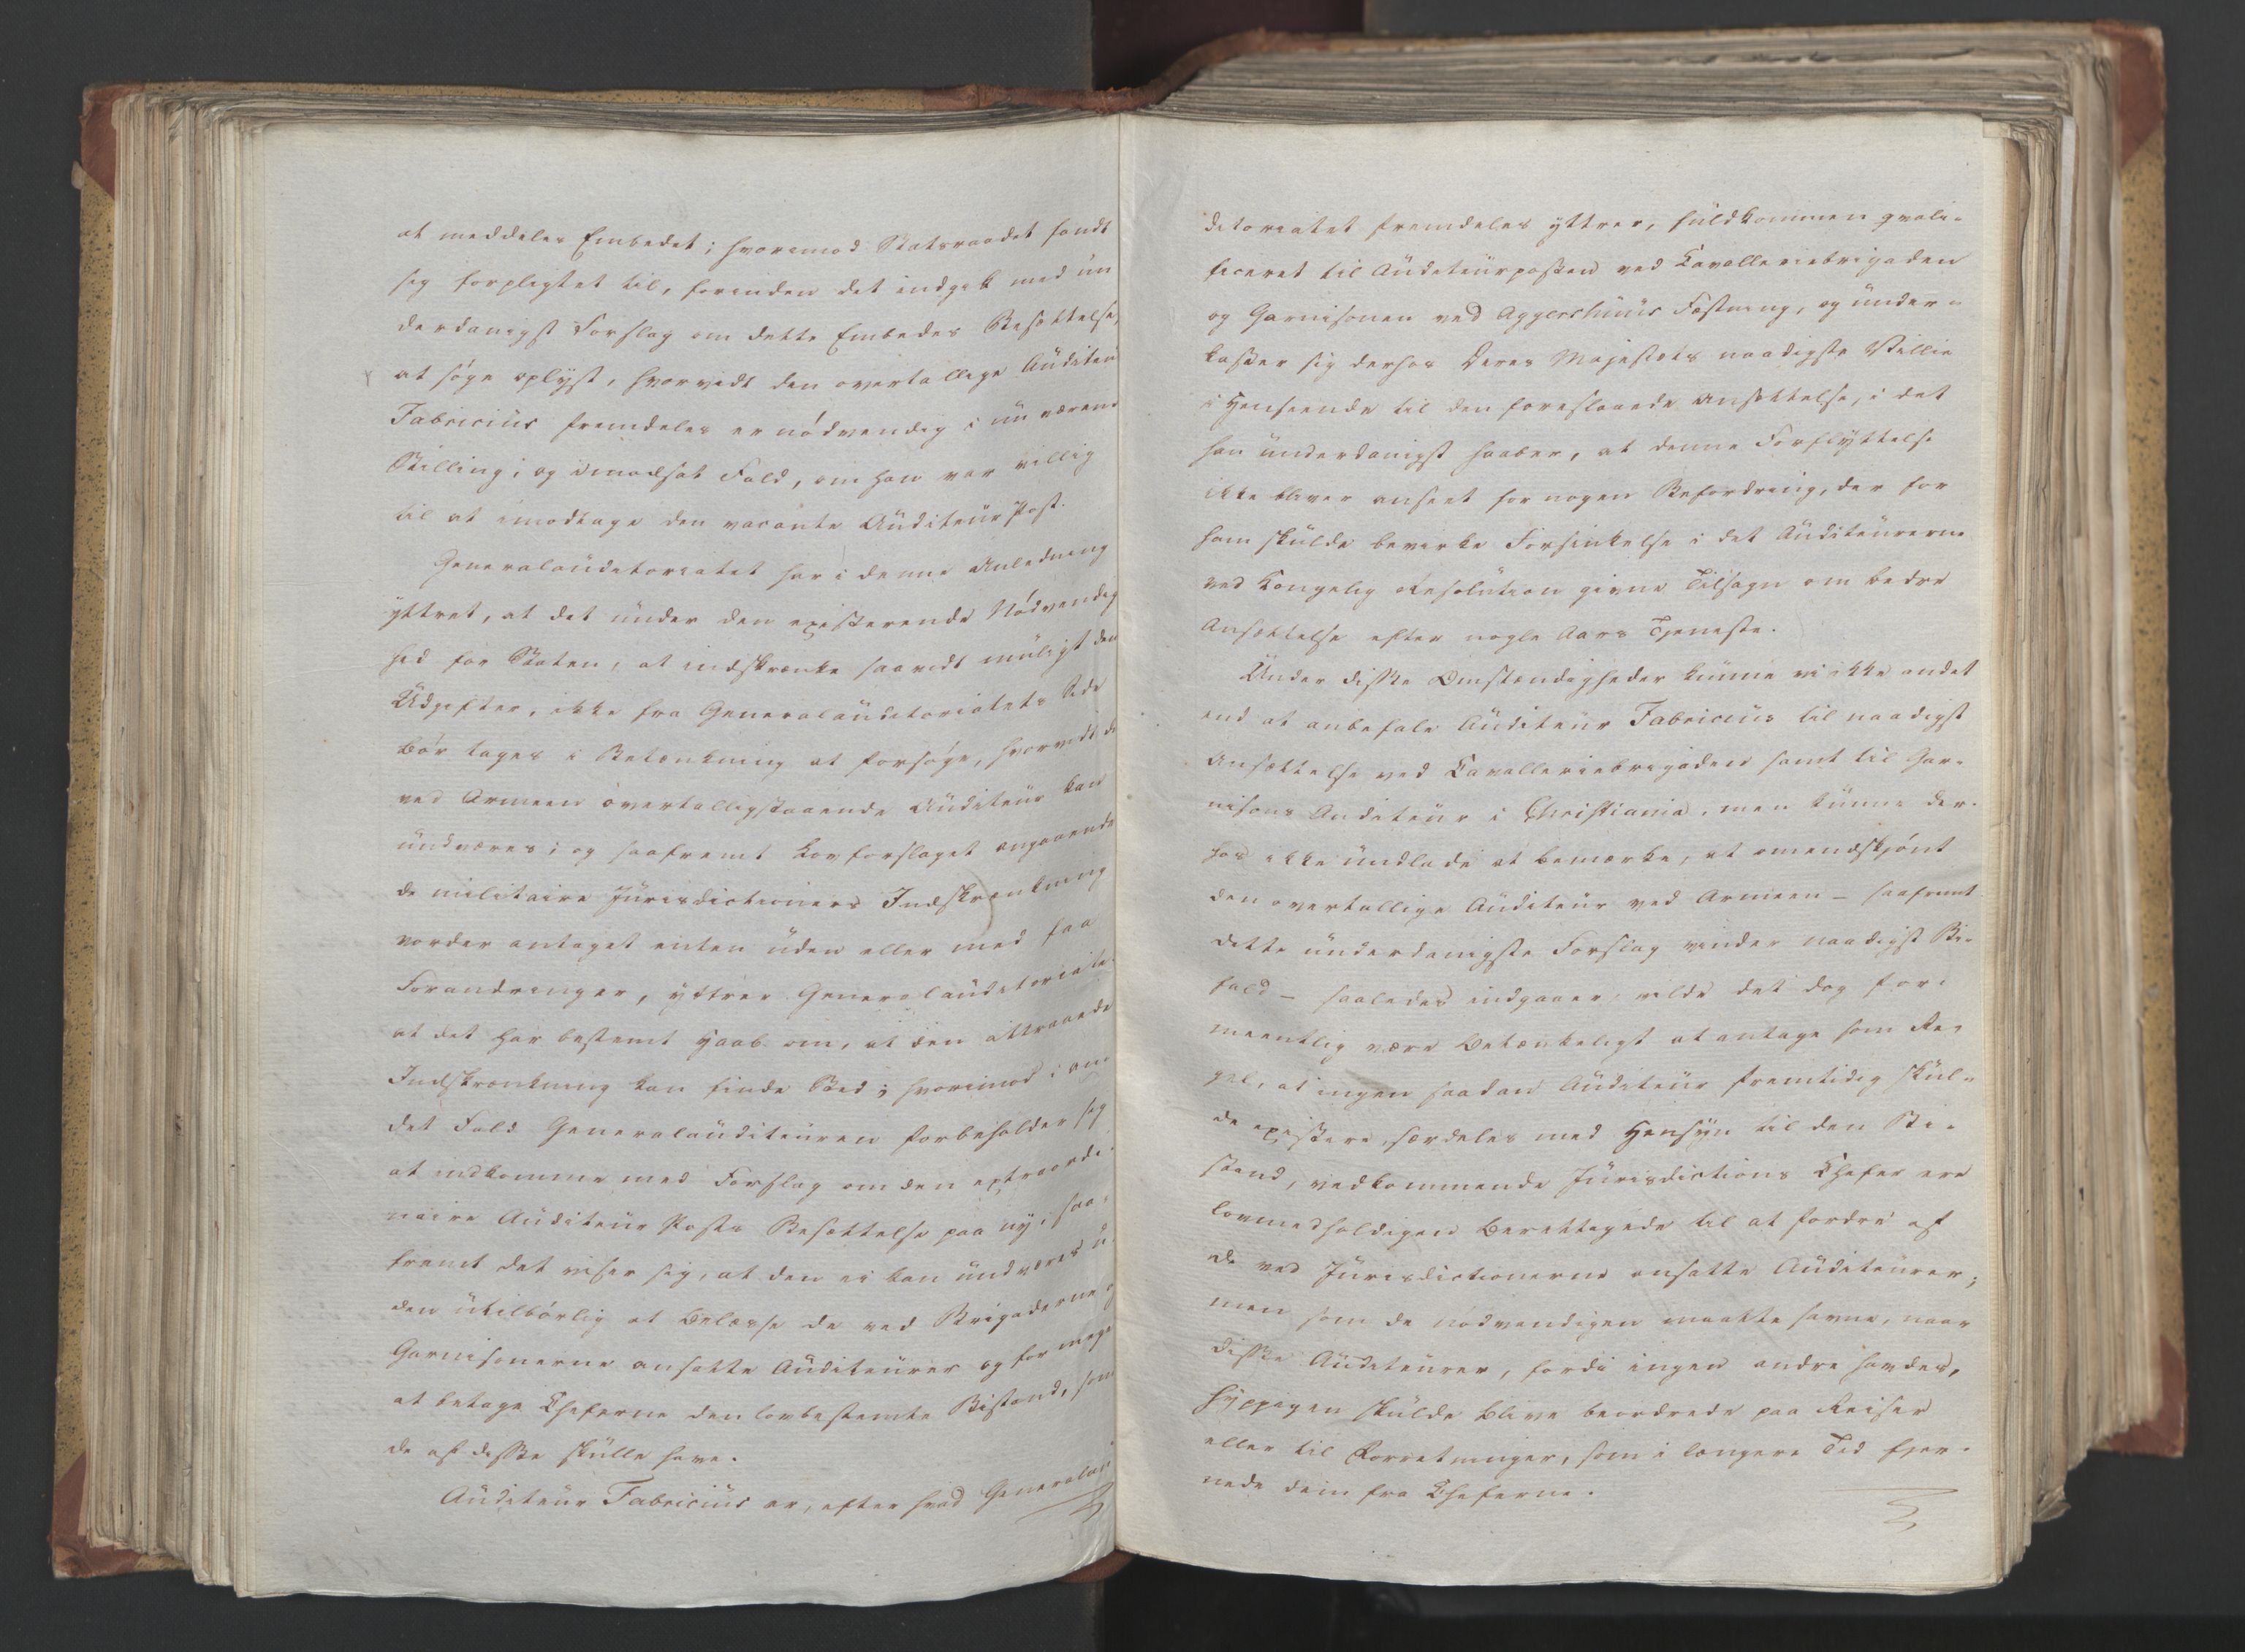 at meddeles Embedet; hvorimod Statsraadet fandt
sig forpligtet til, forinden det indgik med un
derdanigst Forslag om dette Embedes Besættelse,
at søge oplyst, hvorvidt den overtallige Auditeur
Fabricius fremdeles er nødvendig i nu værende
Stilling; og i modsat Fald, om han var villig
til at imodtage den vacante Auditeur Post.
Generalauditoriatet har i denne Anledning
yttret, at det under den existerende Nødvendig
hed for Staten, at indskrænke saavidt muligt den
Udgifter, ikke fra Generalauditoriatets Side
bør tages i Betænkning at forsøge, hvorvidt de
ved Armeen overtalligstaaende Auditeur kan
undværes; og saafremt Lovforslaget angaaende
de militaire Jurisdictioners Indskrænkning
vorder antaget enten uden eller med faa
Forandringer, yttrer Generalauditoriatet
at det har bestemt Haab om, at den attraaede
Indskrænkning kan finde Sted; hvorimod i an
det Fald Generalauditeuren forbeholder sig
at indkomme med Forslag om den extraordi-
naire Auditeur Posts Besættelse paa ny, saa-
fremt det viser sig, at den ei kan undværes u-
den utilbørlig at belæsse de ved Brigaderne og
Garnisonerne ansatte Auditeurer og for meget
at betage Cheferne den lovbestemte Bistand, som
de af disse skulle have.
Auditeur Fabricius er, efter hvad Generalau
ditoriatet fremdeles yttrer, fuldkommen qvali-
ficeret til Auditeurposten ved Cavalleriebrigaden
og Garnisonen ved Aggershuus Fæstning, og under-
kaster sig derhos Deres Majestæts naadigste Villie
i Henseende til den foreslaaede Ansættelse, i det
han underdanigst haaber, at denne Forflyttelse
ikke bliver anseet for nogen Befordring, der for
ham skulde bevirke Forsinkelse i det Auditeurerne
ved Kongelig Resolution givne Tilsagn om bedre
Ansættelse efter nogle Aars Tjeneste.
Under disse Omstændigheder kunne vi ikke andet
end at anbefale Auditeur Fabricius til naadigst
Ansættelse ved Cavalleriebrigaden samt til Gar-
nisons Auditeur i Christiania, men kunne der-
hos ikke undlade at bemærke, at omendskjønt
den overtallige Auditeur ved Armeen - saafremt
dette underdanigste Forslag vinder naadigst Bi-
fald - saaledes indgaaer, vilde det dog for-
meentlig være betænkeligt at antage som Re-
gel, at ingen saadan Auditeur fremtidig skul-
de existere, særdeles med Hensyn til den Bi-
stand, vedkommende Jurisdictions Chefer ere
lovmedholdigen berettigede til at fordre af
de ved Jurisdictionerne ansatte Auditeurer;
men som de nødvendigen maatte savne, naar
disse Auditeurer, fordi ingen andre havdes,
hyppigen skulde blive beordrede paa Reiser
eller til Forretninger, som i længere Tid fjer-
nede dem fra Cheferne.